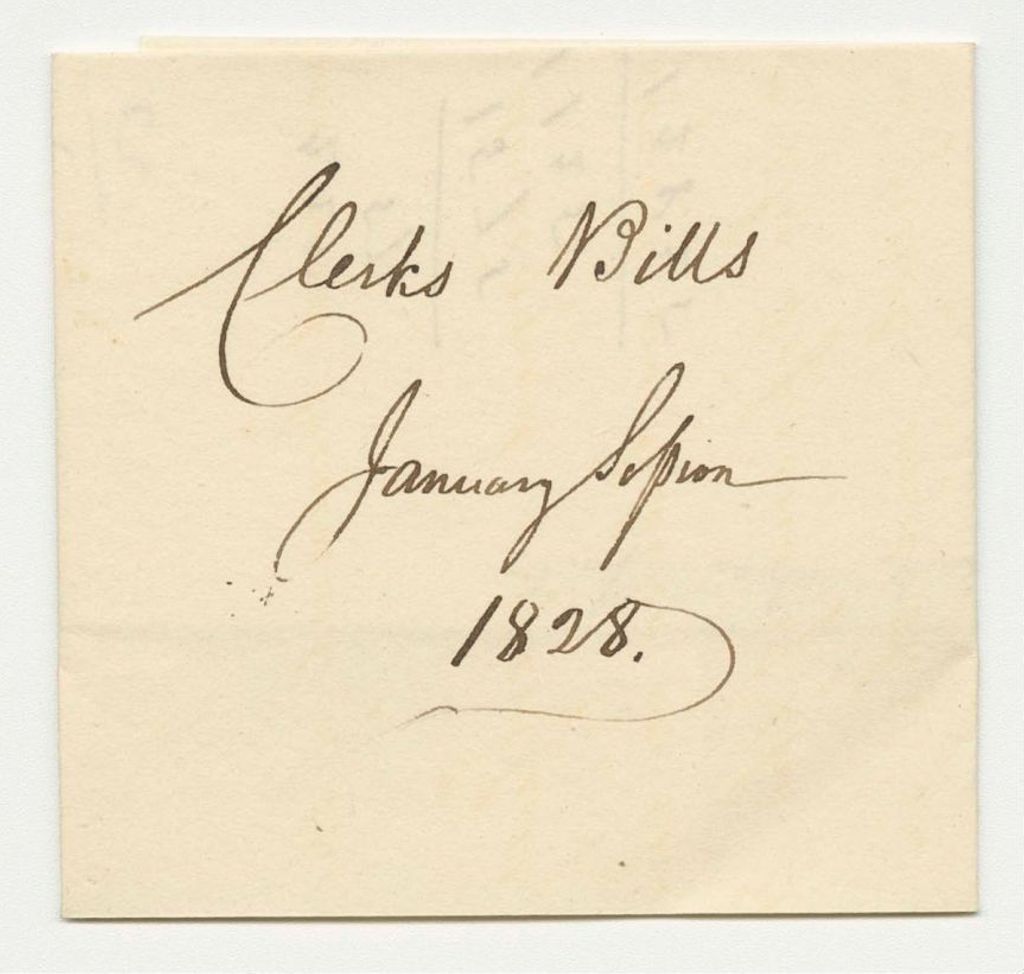 Clerks Bills
January Seſsion
1828.